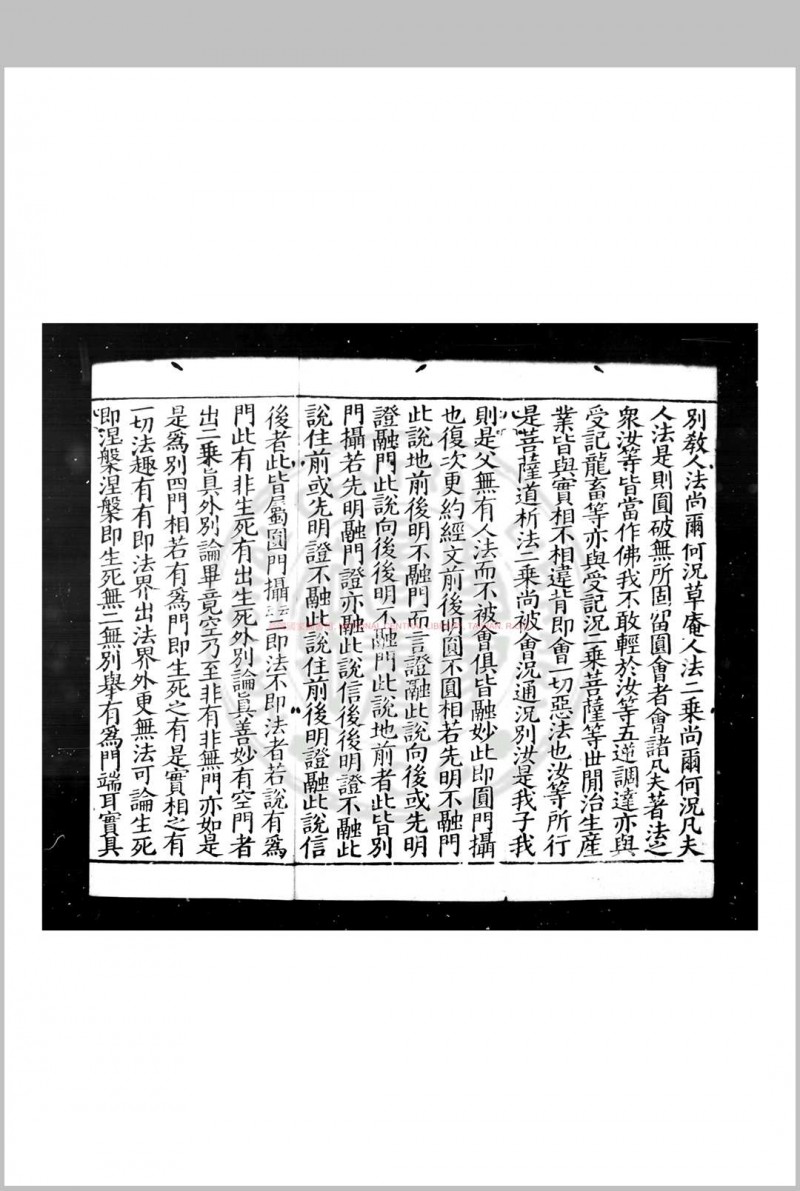 別教人法尚爾何況草庵人法二乘尚爾何況凡夫
人法是則圓破無所固留圓會者會諸凡夫著法之
衆汝等皆當作佛我不敢輕於汝等五逆調達亦與
受記龍畜等亦與受記況二乘菩薩等世間治生産
業皆與實相不相違背即會一切惡法也汝等所行
是菩薩道析法二乘尚被會況通況別汝是我子我
則是父無有人法而不被會俱皆融妙此即圓門攝
也復次更約經文前後明圓不圓相若先明不融門
此說地前後明不融門而言證融此說向後或先明
證融門此說向後後明不融門此說地前者此皆別
門攝若先明融門證亦融此說信後後明證不融此
說住前或先明證不融此說住前後明證融此說信
後者此皆屬圓門攝三即法不即法者若說有為
門此有非生死有出生死外別論真善妙有空門者
出二乘真外別論畢竟空乃至非有非無門亦如是
是爲別四門相若有爲門即生死之有是實相之有
一切法趣有有即法界出法界外更無法可論生死
即涅槃涅槃即生死無二無別舉有爲門端耳實具